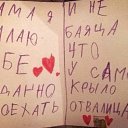 АМА Я
ЛАЮ
БЕ
ДАЧНО
ОЕХАТЬ
И НЕ
БАЯЦА
ЧТО
У САМО
КРЫЛО
ОТВАЛИЦА